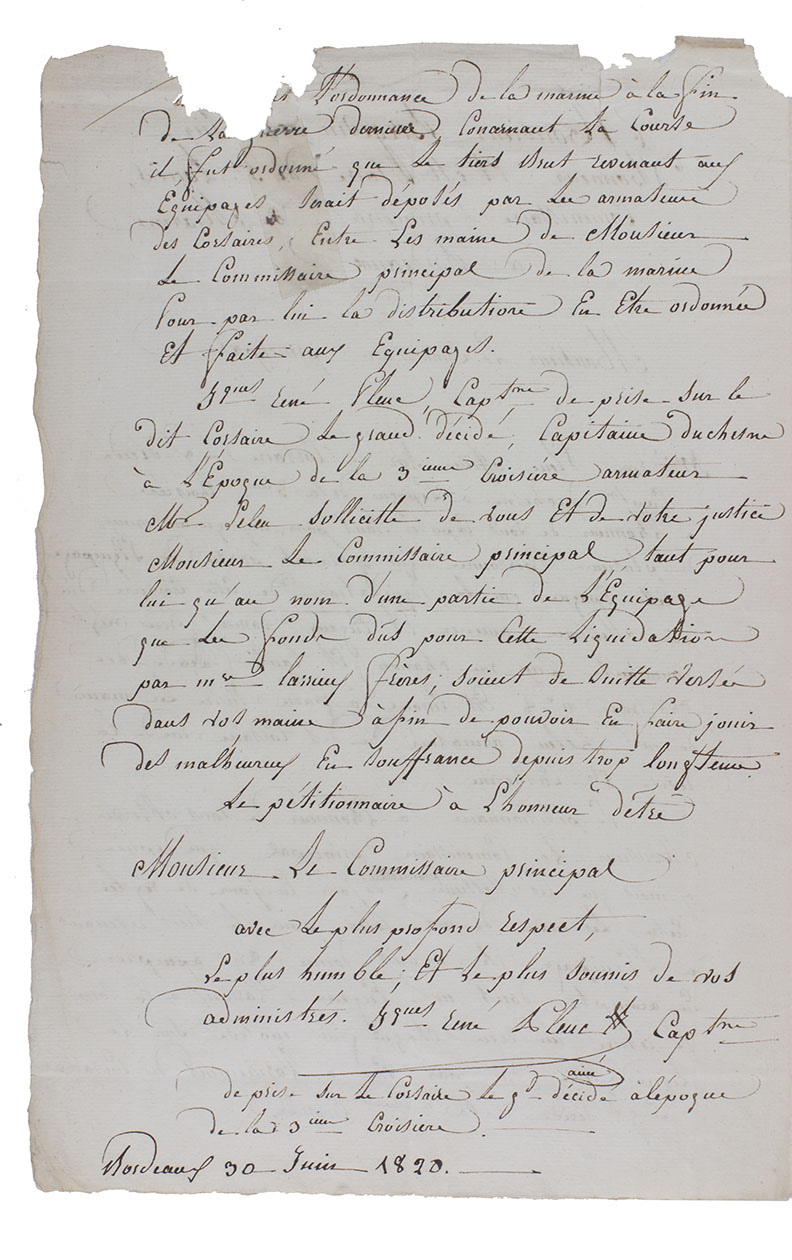 l'ordonnance de la marine à la fin
de la guerre derniere Concernant la Course
il fut ordonné que Le tiers brut revenant aux
Équipages serait déposés par Les armateurs
des Corsaires, Entre Les mains de Monsieur
Le Commissaire principal de la marine
Pour par lui la distribution En Etre ordonnée
Et faite aux Equipages.
Jques René Pleuc, Captne de prise sur le
dit Corsaire Le grand décidé, Capitaine duchesne
à L'Époque de la 3ieme Croisiére armateur
Mr Peleu sollicitte de vous Et de votre justice
Monsieur Le Commissaire principal, tant pour
lui qu'au nom d'une partie de L'Équipage
que Les fonds dûs pour Cette Liquidation
par mrs frères, soient de suitte versés
dans vos mains à fin de pouvoir En faire jouir
des malheureux En souffrance depuis trop longtems.
Le pétitionnaire à L'honneur d'étré
Monsieur Le Commissaire principal
avec Le plus profond respect,
Le plus humble, Et Le plus soumis de vos
administrés. Jques René Pleuc Captne
ainé
de prise sur Le Corsaire Le gd décidé à l'époque
de la 3ieme Croisiere.
Bordeaux 30 Juin 1820.